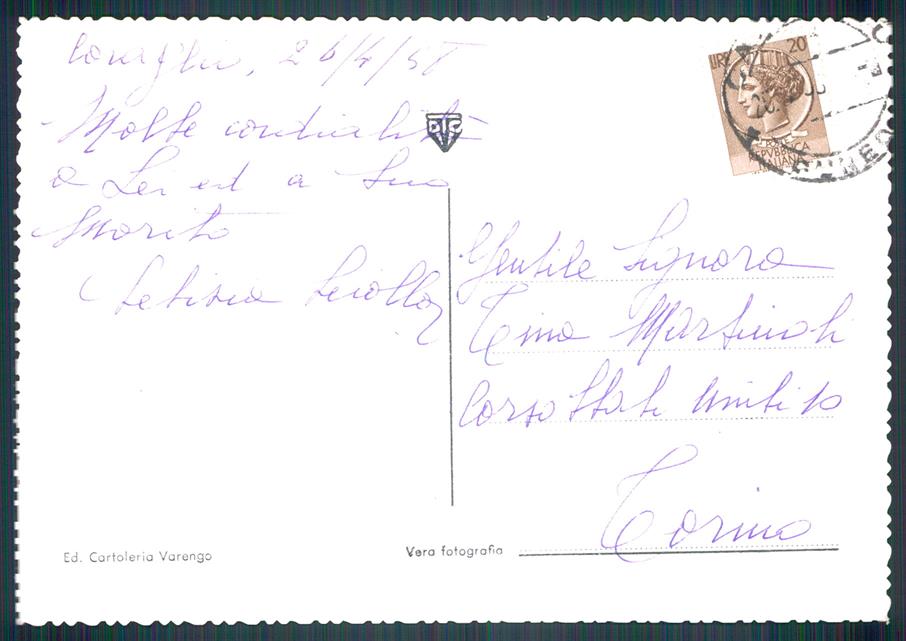 26/4/5
Molte cordialità
a Lei ed a Suo
Marito
Letizia
LIRE 20
POSTE
REPVBBLICA
ITALIANA
Gentile Signora
Tina Martinoli
Corso Stati Uniti 10
Torino
Ed. Cartoleria Varengo
Vera fotografia